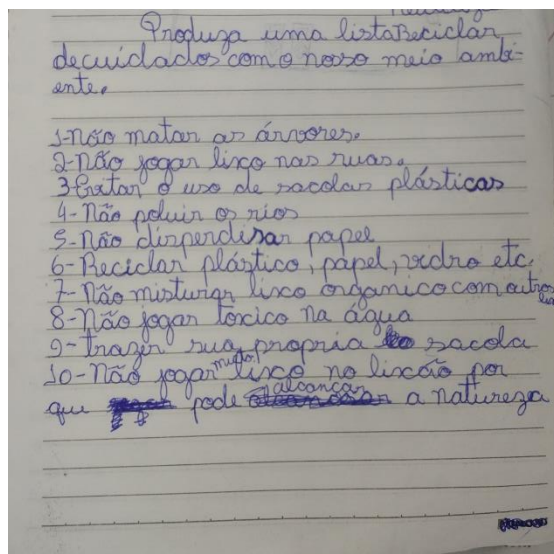 Produza uma lista Reciclar
de cuidados com o noso meio ambi-
ente.
1-não matar as árvores.
2-não jogar lixo nas ruas.
3 Evitar o uso de sacolas plásticas
4-não poluir os rios
5-não disperdisar papel
6-Reciclar plástico, papel, vidro etc.
7-não misturar lixo organico com outros
8-não jogar toxico na água
9-trazer sua propria sacola
10-não jogar muito lixo no lixão por
que pode alcançar a natureza